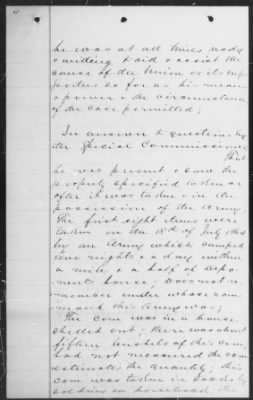 he was at all times ready
& willing & aid & assist the
cause of the Union or its sup
porters so far as his means
& power & the circumstances
of the case permitted;
In answer to questions by
the Special Commissioner
That
he was present & saw the
property specified taken or
after it was taken in the
possession of the Army
The first eight items were
taken on the 18th of July 186
by an Army which camped
two nights & a day within
a mile & a half of
house; Does not re
member under whose com
mand the Army was;
The corn was in a house,
shelled out; there was about
fifteen bushels of this corn,
had not measured the corn
estimates the quantity; this
corn was taken in sacks by
soldiers on horseback, the